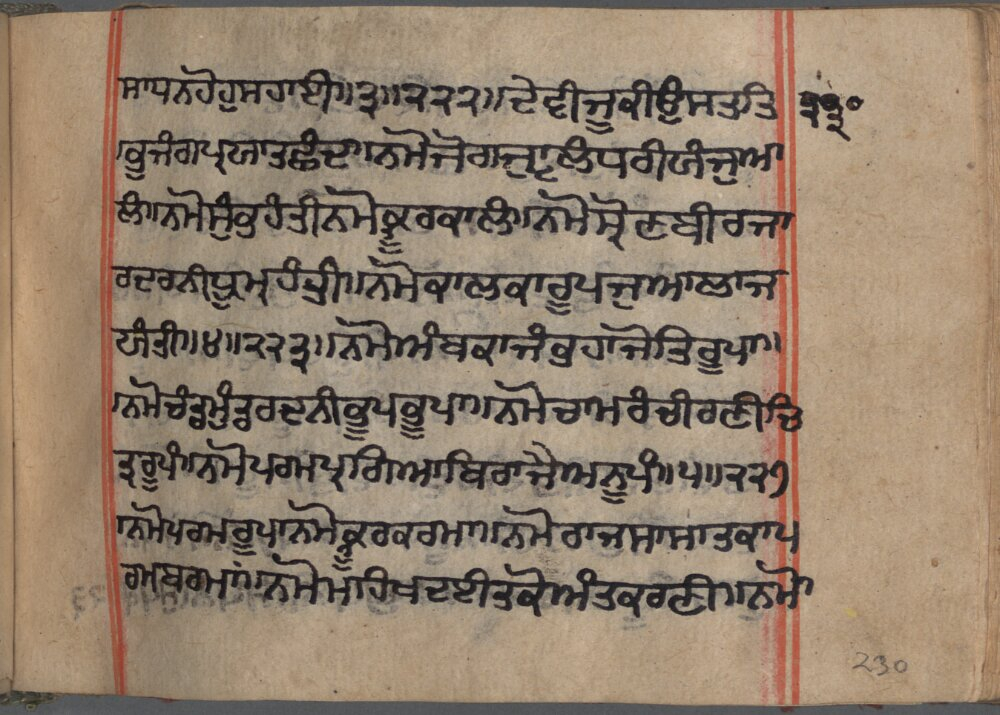 ਸਾਧਨਹੋਹੁਸਹਾਈ॥੩॥੨੨੨॥ਦੇਵੀਜੂਕੀਉਸਤਤਿ ੨੩੦
ਭੁਜੰਗਪ੍ਰਯਾਤਛੰਦ॥ਨਮੋਜੋਗਜ੍ਵਾਲੰਧਰੀਯੰਜੁਆ
ਲੰ॥ਨਮੋਸੁੰਭਹੰਤੀਨਮੋਕ੍ਰੂਰਕਾਲੰ॥ਨਮੋਸ੍ਰੋਣਬੀਰਜਾ
ਰਦਰਨੀਧੂਮ੍ਰਹੰਤ੍ਰੀ॥ਨਮੋਕਾਲਕਾਰੂਪਜੁਆਲਾਜ
ਯੰਤੀ॥੪॥੨੨੩॥ਨਮੋਅੰਬਕਾਜੰਭਹਾਜੋਤਿਰੂਪਾ॥
ਨਮੋਚੰਡਮੁੰਡਰਦਨੀਭੂਪਭੂਪਾ॥ਨਮੋਚਾਮਰੰਚੀਰਣੀਚਿ
ਤ੍ਰਰੂਪੰ॥ਨਮੋਪਰਮਪ੍ਰਗਿਆਬਿਰਾਜੈਅਨੂਪੰ॥੫॥੨੨੧
ਨਮੋਪਰਮਰੂਪਾਨਮੋਕ੍ਰੂਰਕਰਮਾ॥ਨਮੋਰਾਜਸਾਸਾਤਕਾਪ
ਰਮਬਰਮਾ॥ਨਮੋਮਹਿਖਦਈਤਕੋਅੰਤਕਰਣੀ॥ਨਮੋ
230